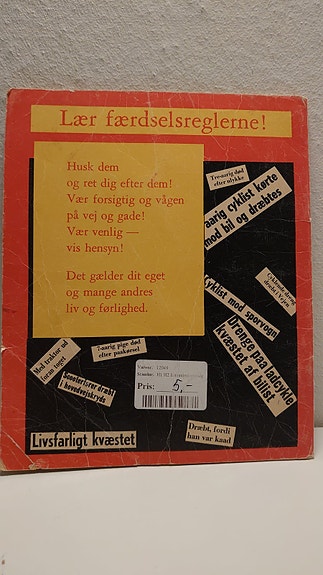 Lær færdselsreglerne!
Husk dem
og ret dig efter dem!
Vær forsigtig og vågen
på vej og gade!
Vær venlig —
vis hensyn!
Det gælder dit eget
og mange andres
liv og førlighed.
Tre-aarig død
efter ulykke
aarig cyklist kørte
mod bil og dræbtes
dræbt i Vejen
Cyklist mod sporvogn
Drenge paa ladcykle
kvæstet af bilist
Med traktor ud
foran toget
7-aarig pige død
efter paakørsel
Scooterfører dræbt
hovedvejskryds
Varenr. 12068
Pris: 5,-
Livsfarligt kvæstet
Dræbt, fordi
han var kaad